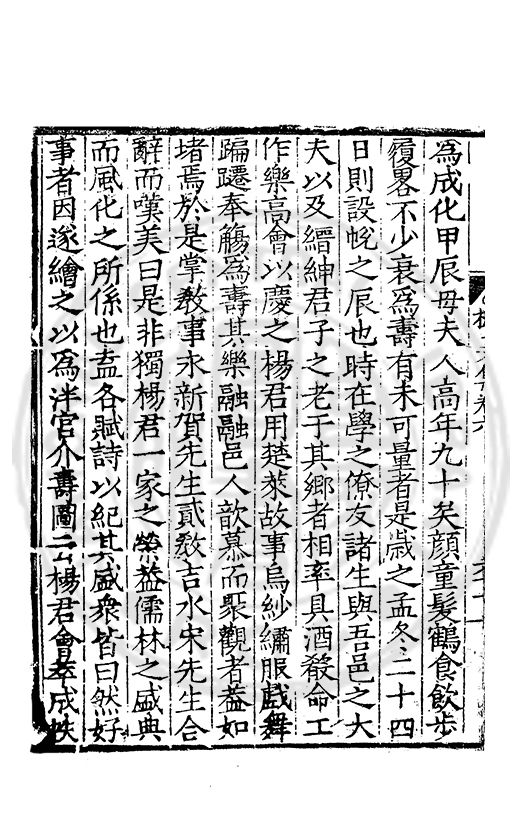 為成化甲辰母夫人高年九十矣顔童髮鶴食飲步
履畧不少衰為壽有未可量者是歲之孟冬二十四
日則設帨之辰也時在學之僚友諸生與吾邑之大
夫以及縉紳君子之老于其鄉者相率具酒殽命工
作樂高會以慶之楊君用楚萊故事烏紗繡服戲舞
蹁躚奉觴為壽其樂融融邑人歆慕而聚觀者葢如
堵焉於是掌教事永新賀先生貳教吉水宋先生合
辭而嘆美曰是非獨楊君一家之榮葢儒林之盛典
而風化之所係也盍各賦詩以紀其盛衆皆曰然好
事者因遂繪之以為泮宫介壽圖云楊君會萃成帙